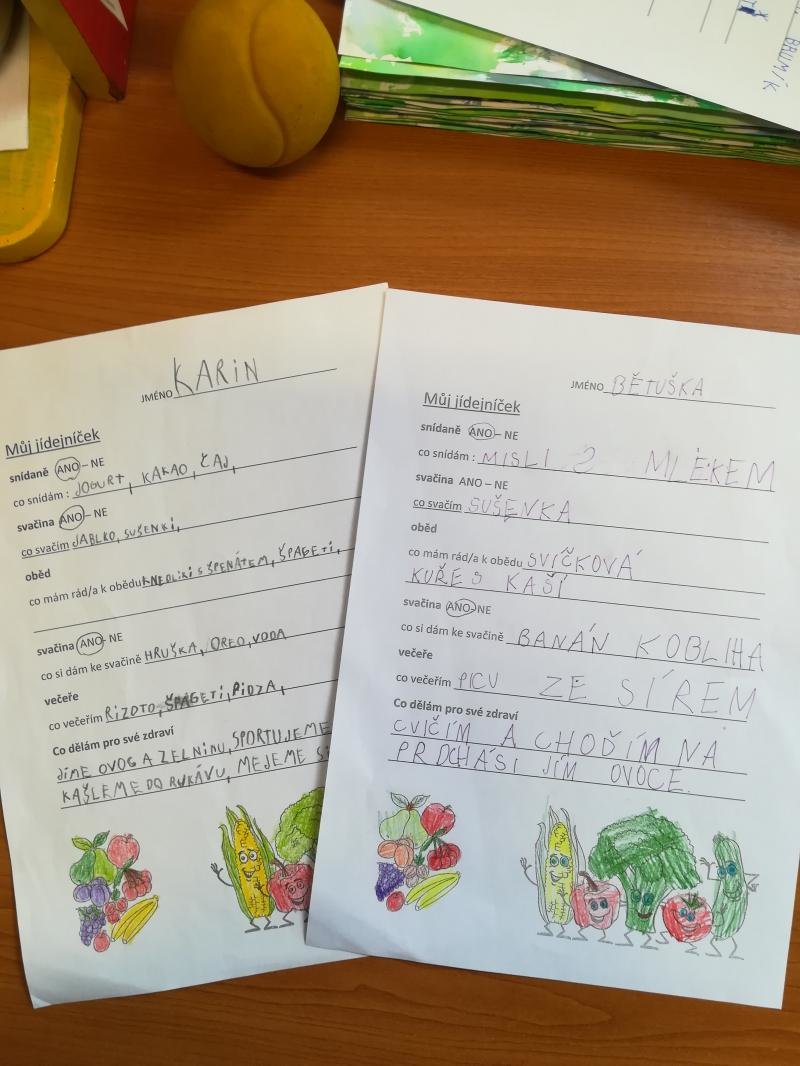 BRUMÍK
JMÉNO KARIN
Můj jídelníček
snídaně ANO – NE
co snídám : JOGURT, KAKAO, ČAJ,
svačina ANO – NE
co svačím JABLKO, SUŠENKI,
oběd
co mám rád/a k obědu KNEDLIKI S ŠPENÁTEM, ŠPAGETI,
svačina ANO – NE
co si dám ke svačině HRUŠKA, OREO, VODA
večeře
co večeřím RIZOTO, ŠPAGETI, PIDZA,
Co dělám pro své zdraví
JÍME OVOG A ZELNINU, SPORTUJEME
KAŠLEME DO RUKÁVU, MEJEME S
JMÉNO BĚTUŠKA
Můj jídelníček
snídaně ANO – NE
co snídám : MISLI S MLÉKEM
svačina ANO – NE
co svačím SUŠENKA
oběd
co mám rád/a k obědu SVÍČKOVÁ
KUŘE S KAŠÍ
svačina ANO – NE
co si dám ke svačině BANÁN KOBLIHA
večeře
co večeřím PICU ZE SÍREM
Co dělám pro své zdraví
CVIČÍM A CHOĎÍM NA
PROCHÁSI JÍM OVOCE.